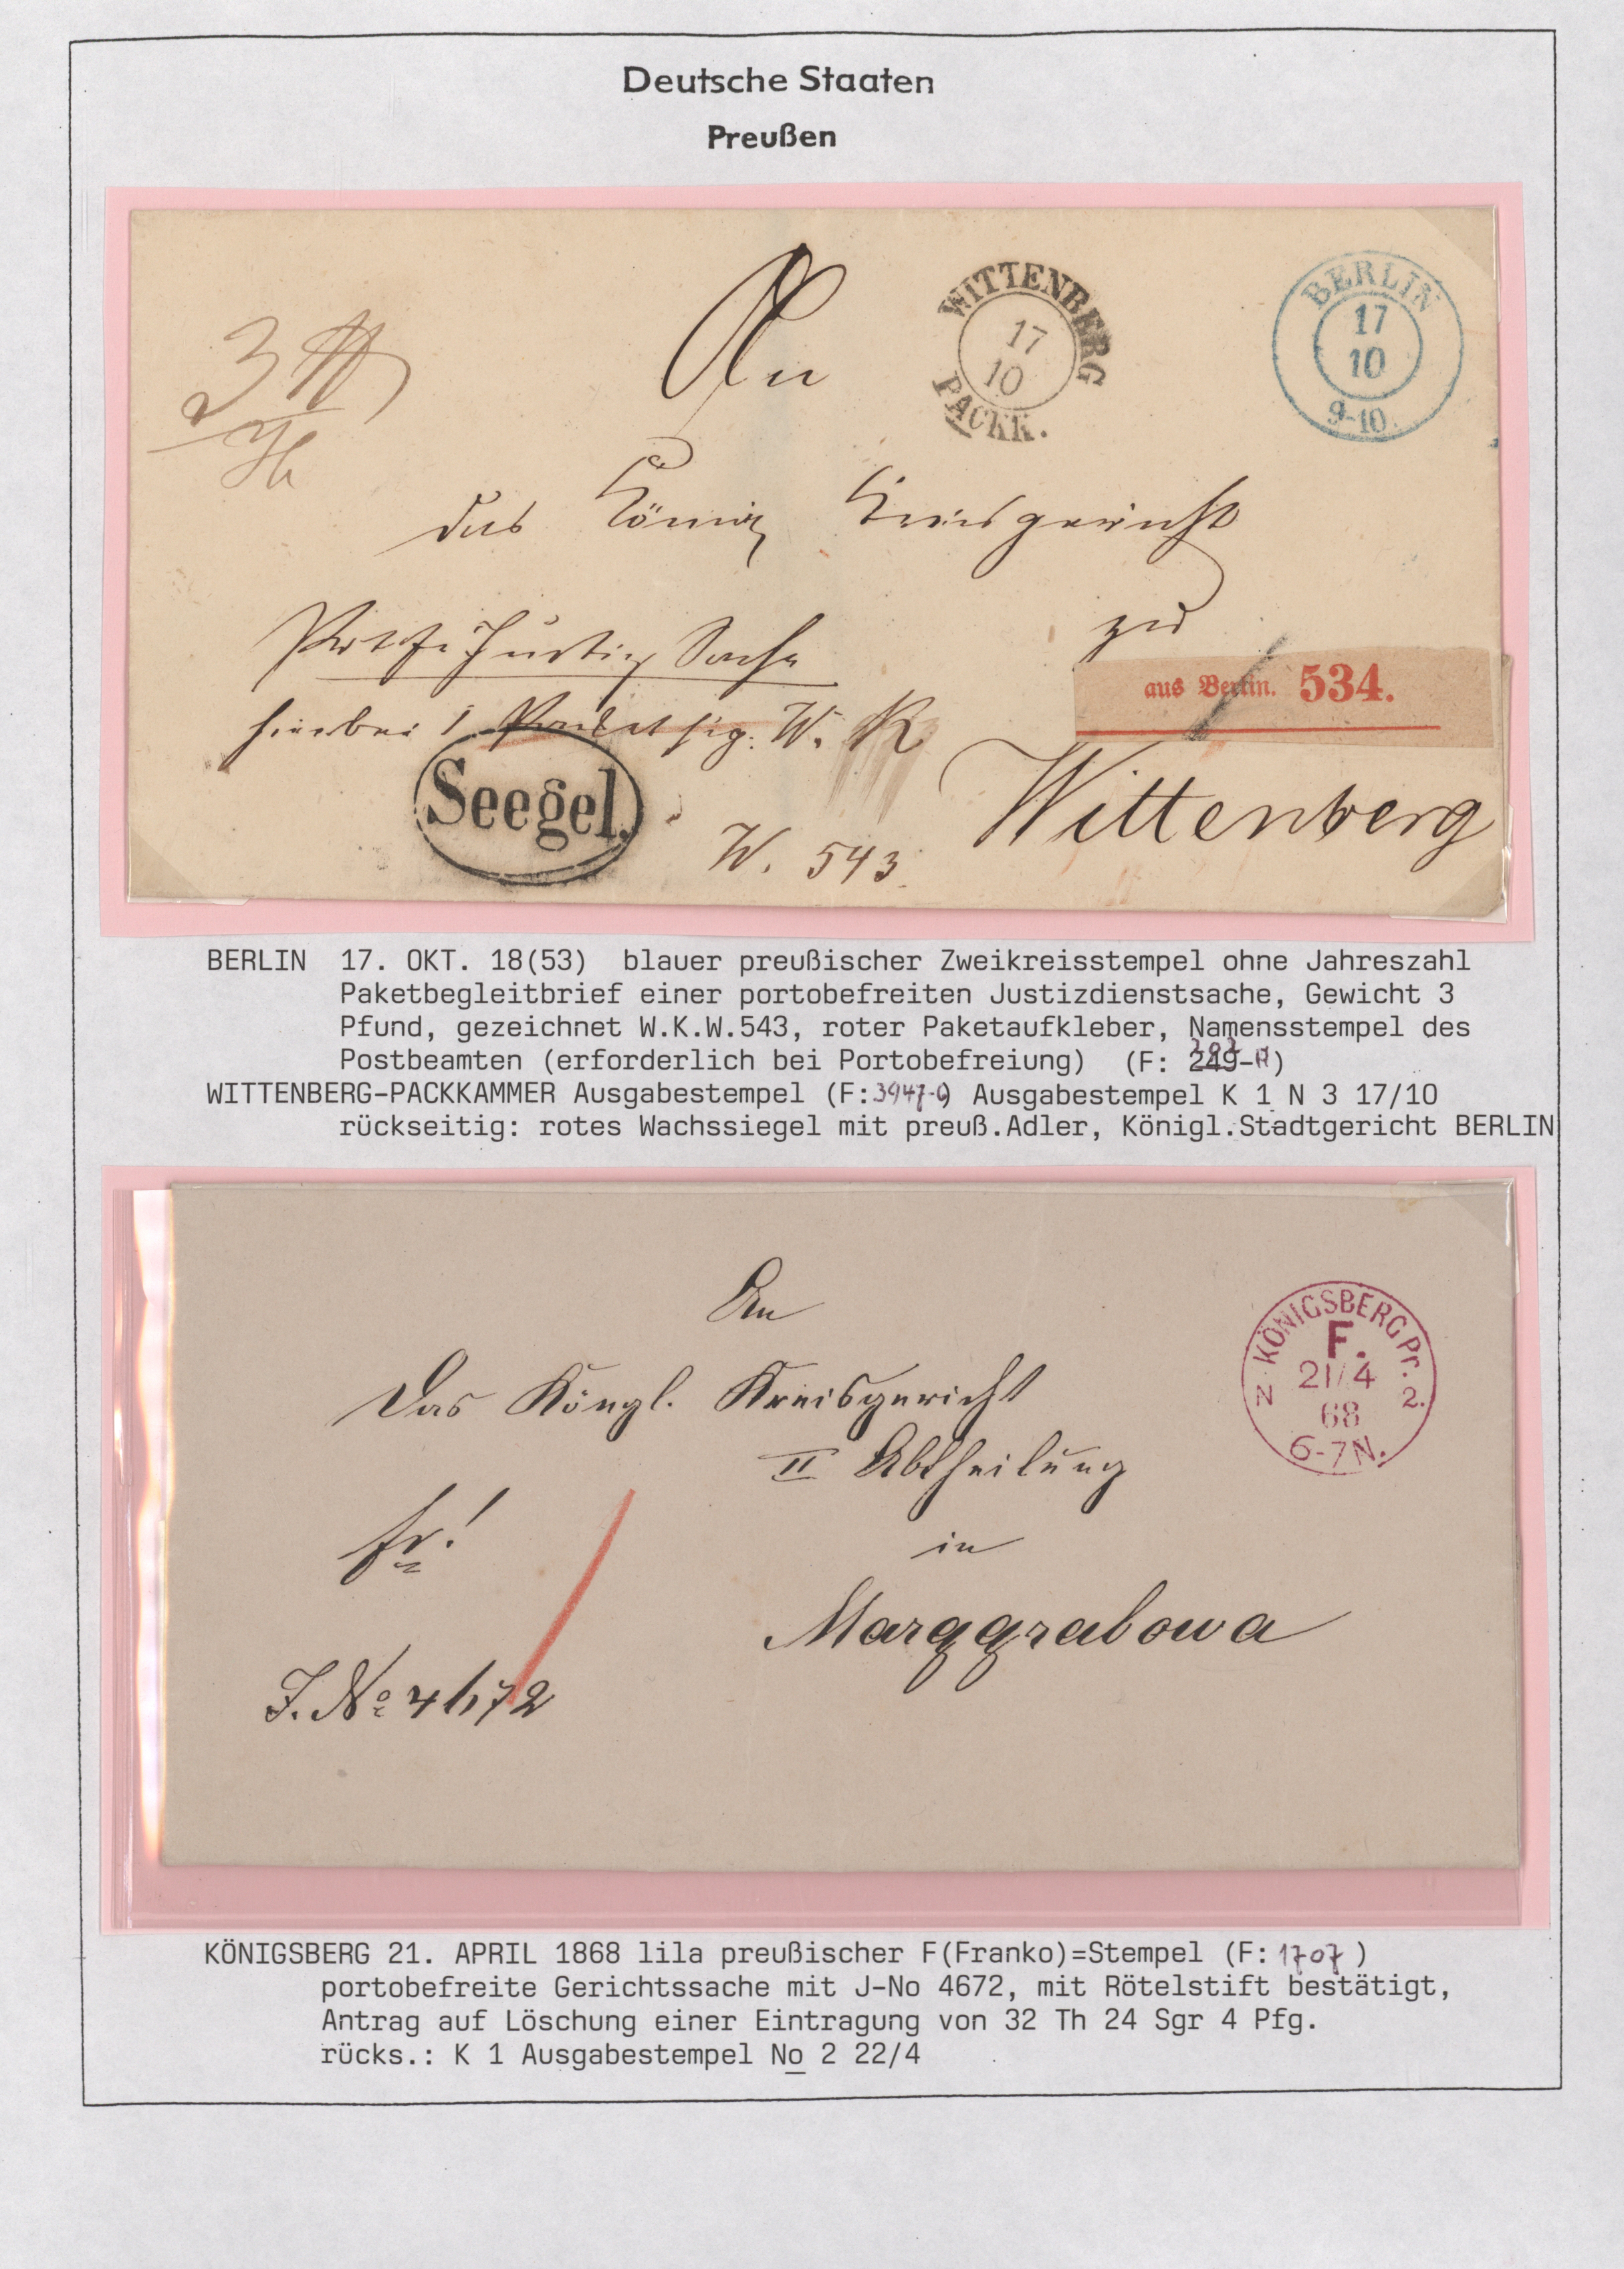 Deutsche Staaten
Preußen
An
WITTENBERG
17
10
PACKK.
BERLIN
17
10
9-10.
3
das König Kreisgericht
zu
Justiz Sache
aus Berlin. 534.
hierbei 1 Packet sig: W. K
Seegel.
W. 543.
Wittenberg
BERLIN 17. OKT. 18(53) blauer preußischer Zweikreisstempel ohne Jahreszahl
Paketbegleitbrief einer portobefreiten Justizdienstsache, Gewicht 3
Pfund, gezeichnet W.K.W.543, roter Paketaufkleber, Namensstempel des
Postbeamten (erforderlich bei Portobefreiung) (F: 249-)
WITTENBERG-PACKKAMMER Ausgabestempel (F: ) Ausgabestempel K 1 N 3 17/10
rückseitig: rotes Wachssiegel mit preuß.Adler, Königl.Stadtgericht BERLIN
An
Das Köngl. Kreisgericht
II Abtheilung
fr!
in
Marggrabowa
J. No 4672
KÖNIGSBERG Pr.
F.
21/4
N 2.
68
6-7N.
KÖNIGSBERG 21. APRIL 1868 lila preußischer F(Franko)=Stempel (F: 1707 )
portobefreite Gerichtssache mit J-No 4672, mit Rötelstift bestätigt,
Antrag auf Löschung einer Eintragung von 32 Th 24 Sgr 4 Pfg.
rücks.: K 1 Ausgabestempel No 2 22/4